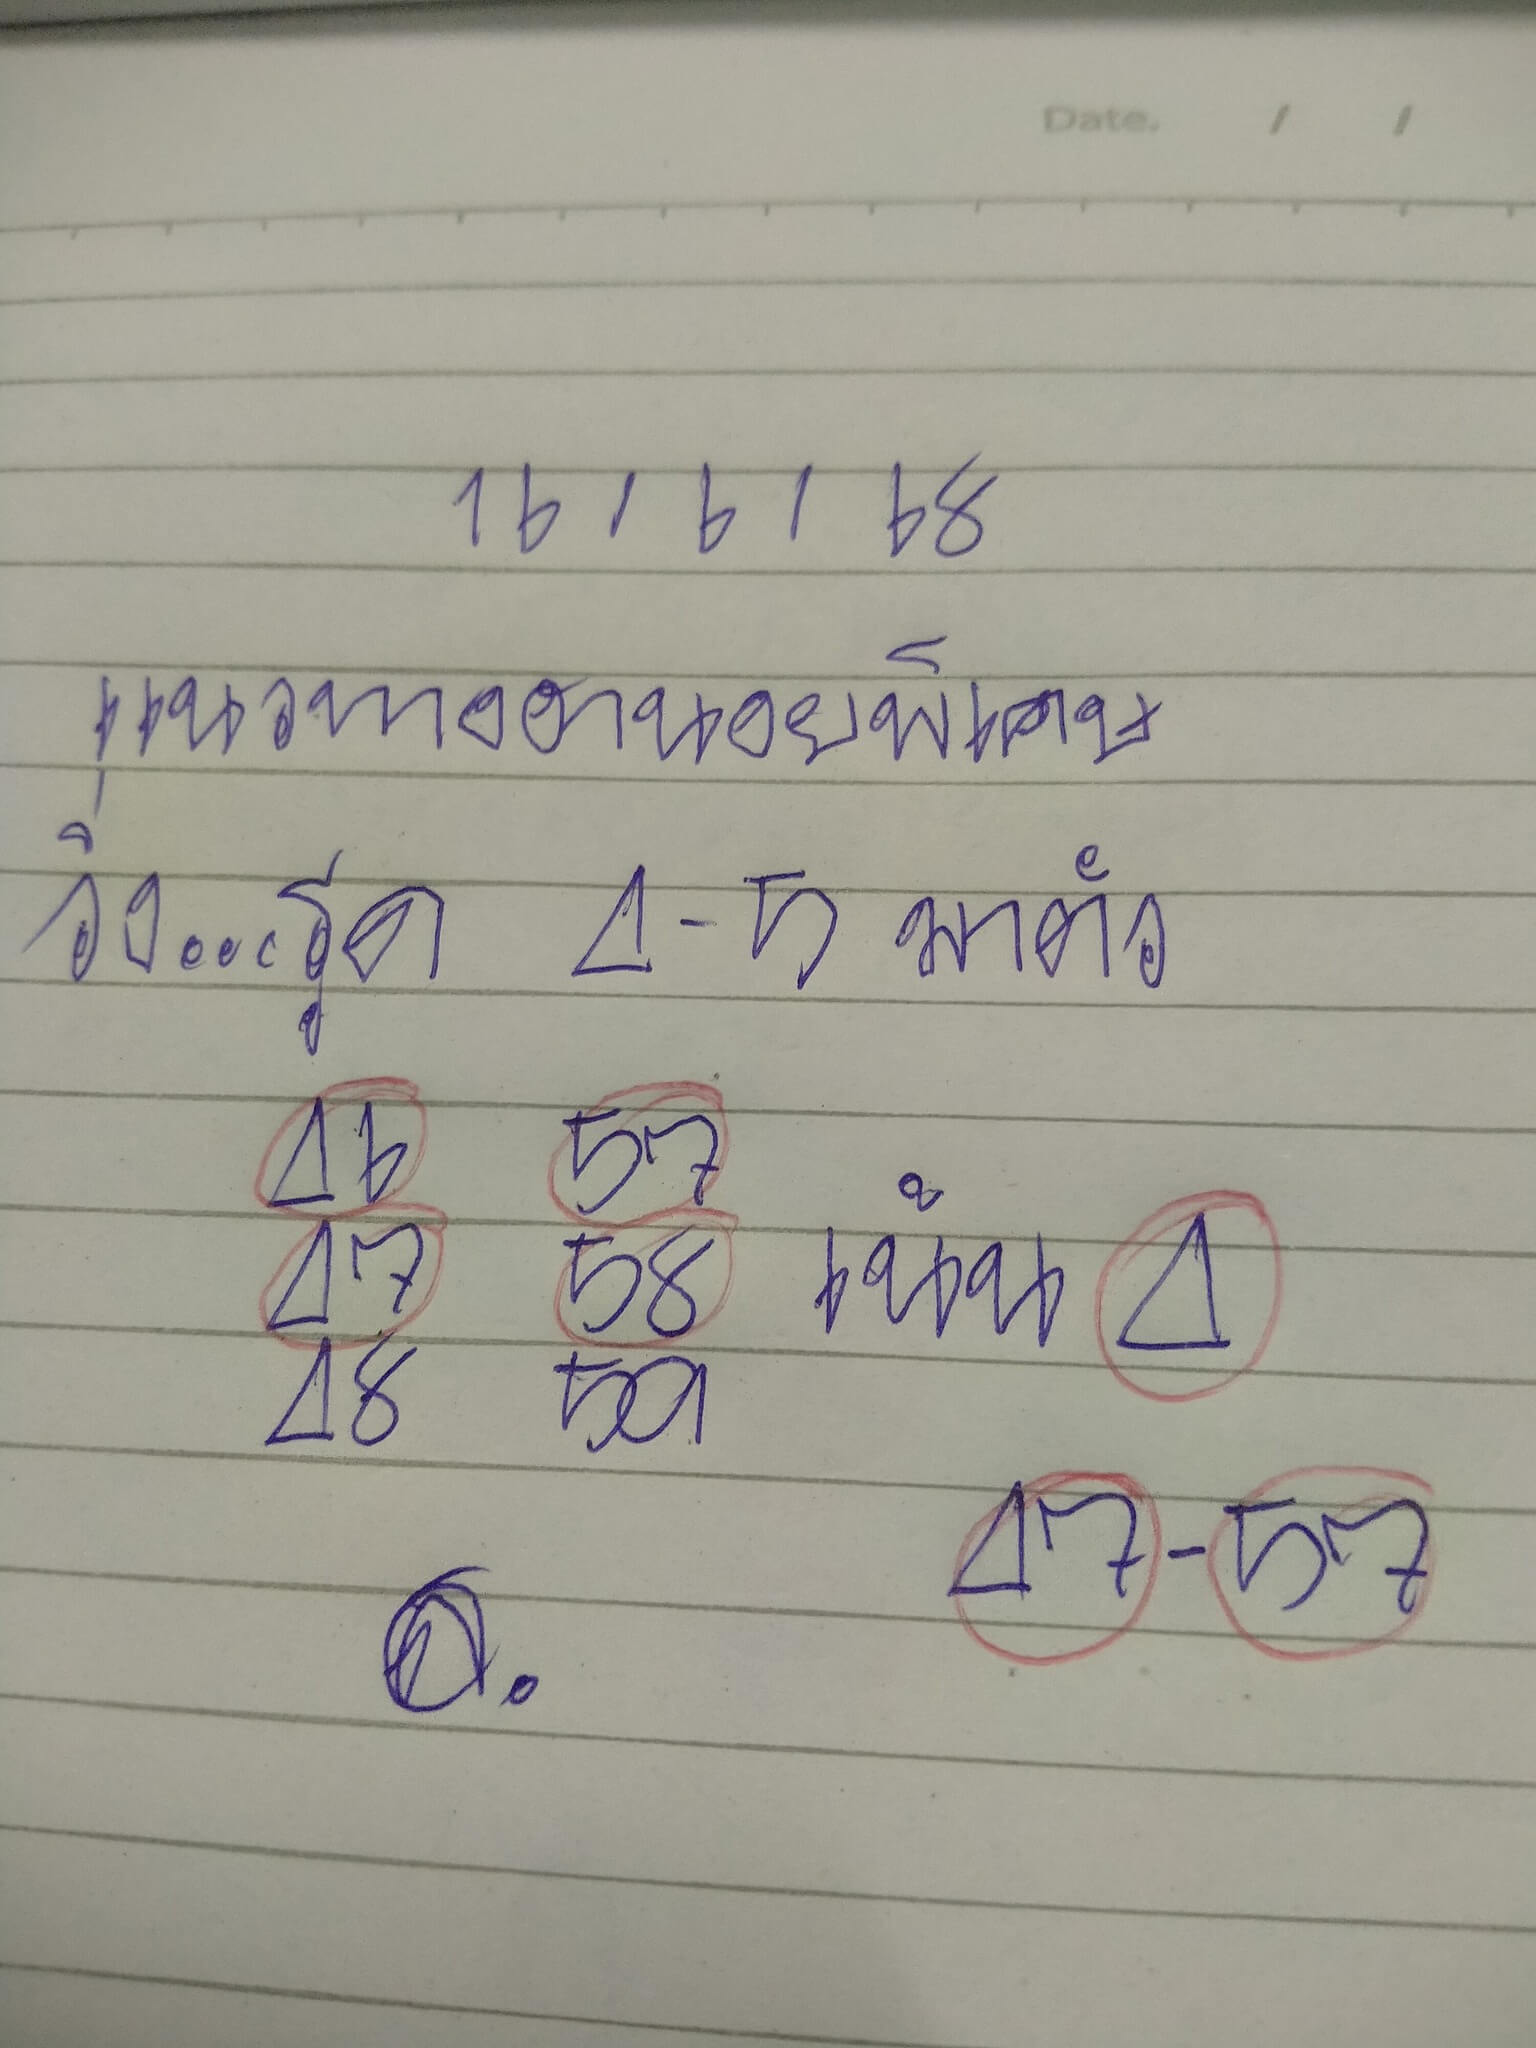 Date. / /
16/6/68
แนวทางฮานอยพิเศษ
วิ่ง...รูด 4-5 มาตัว
46 57
47 58 เน้น 4
48 59
47-57